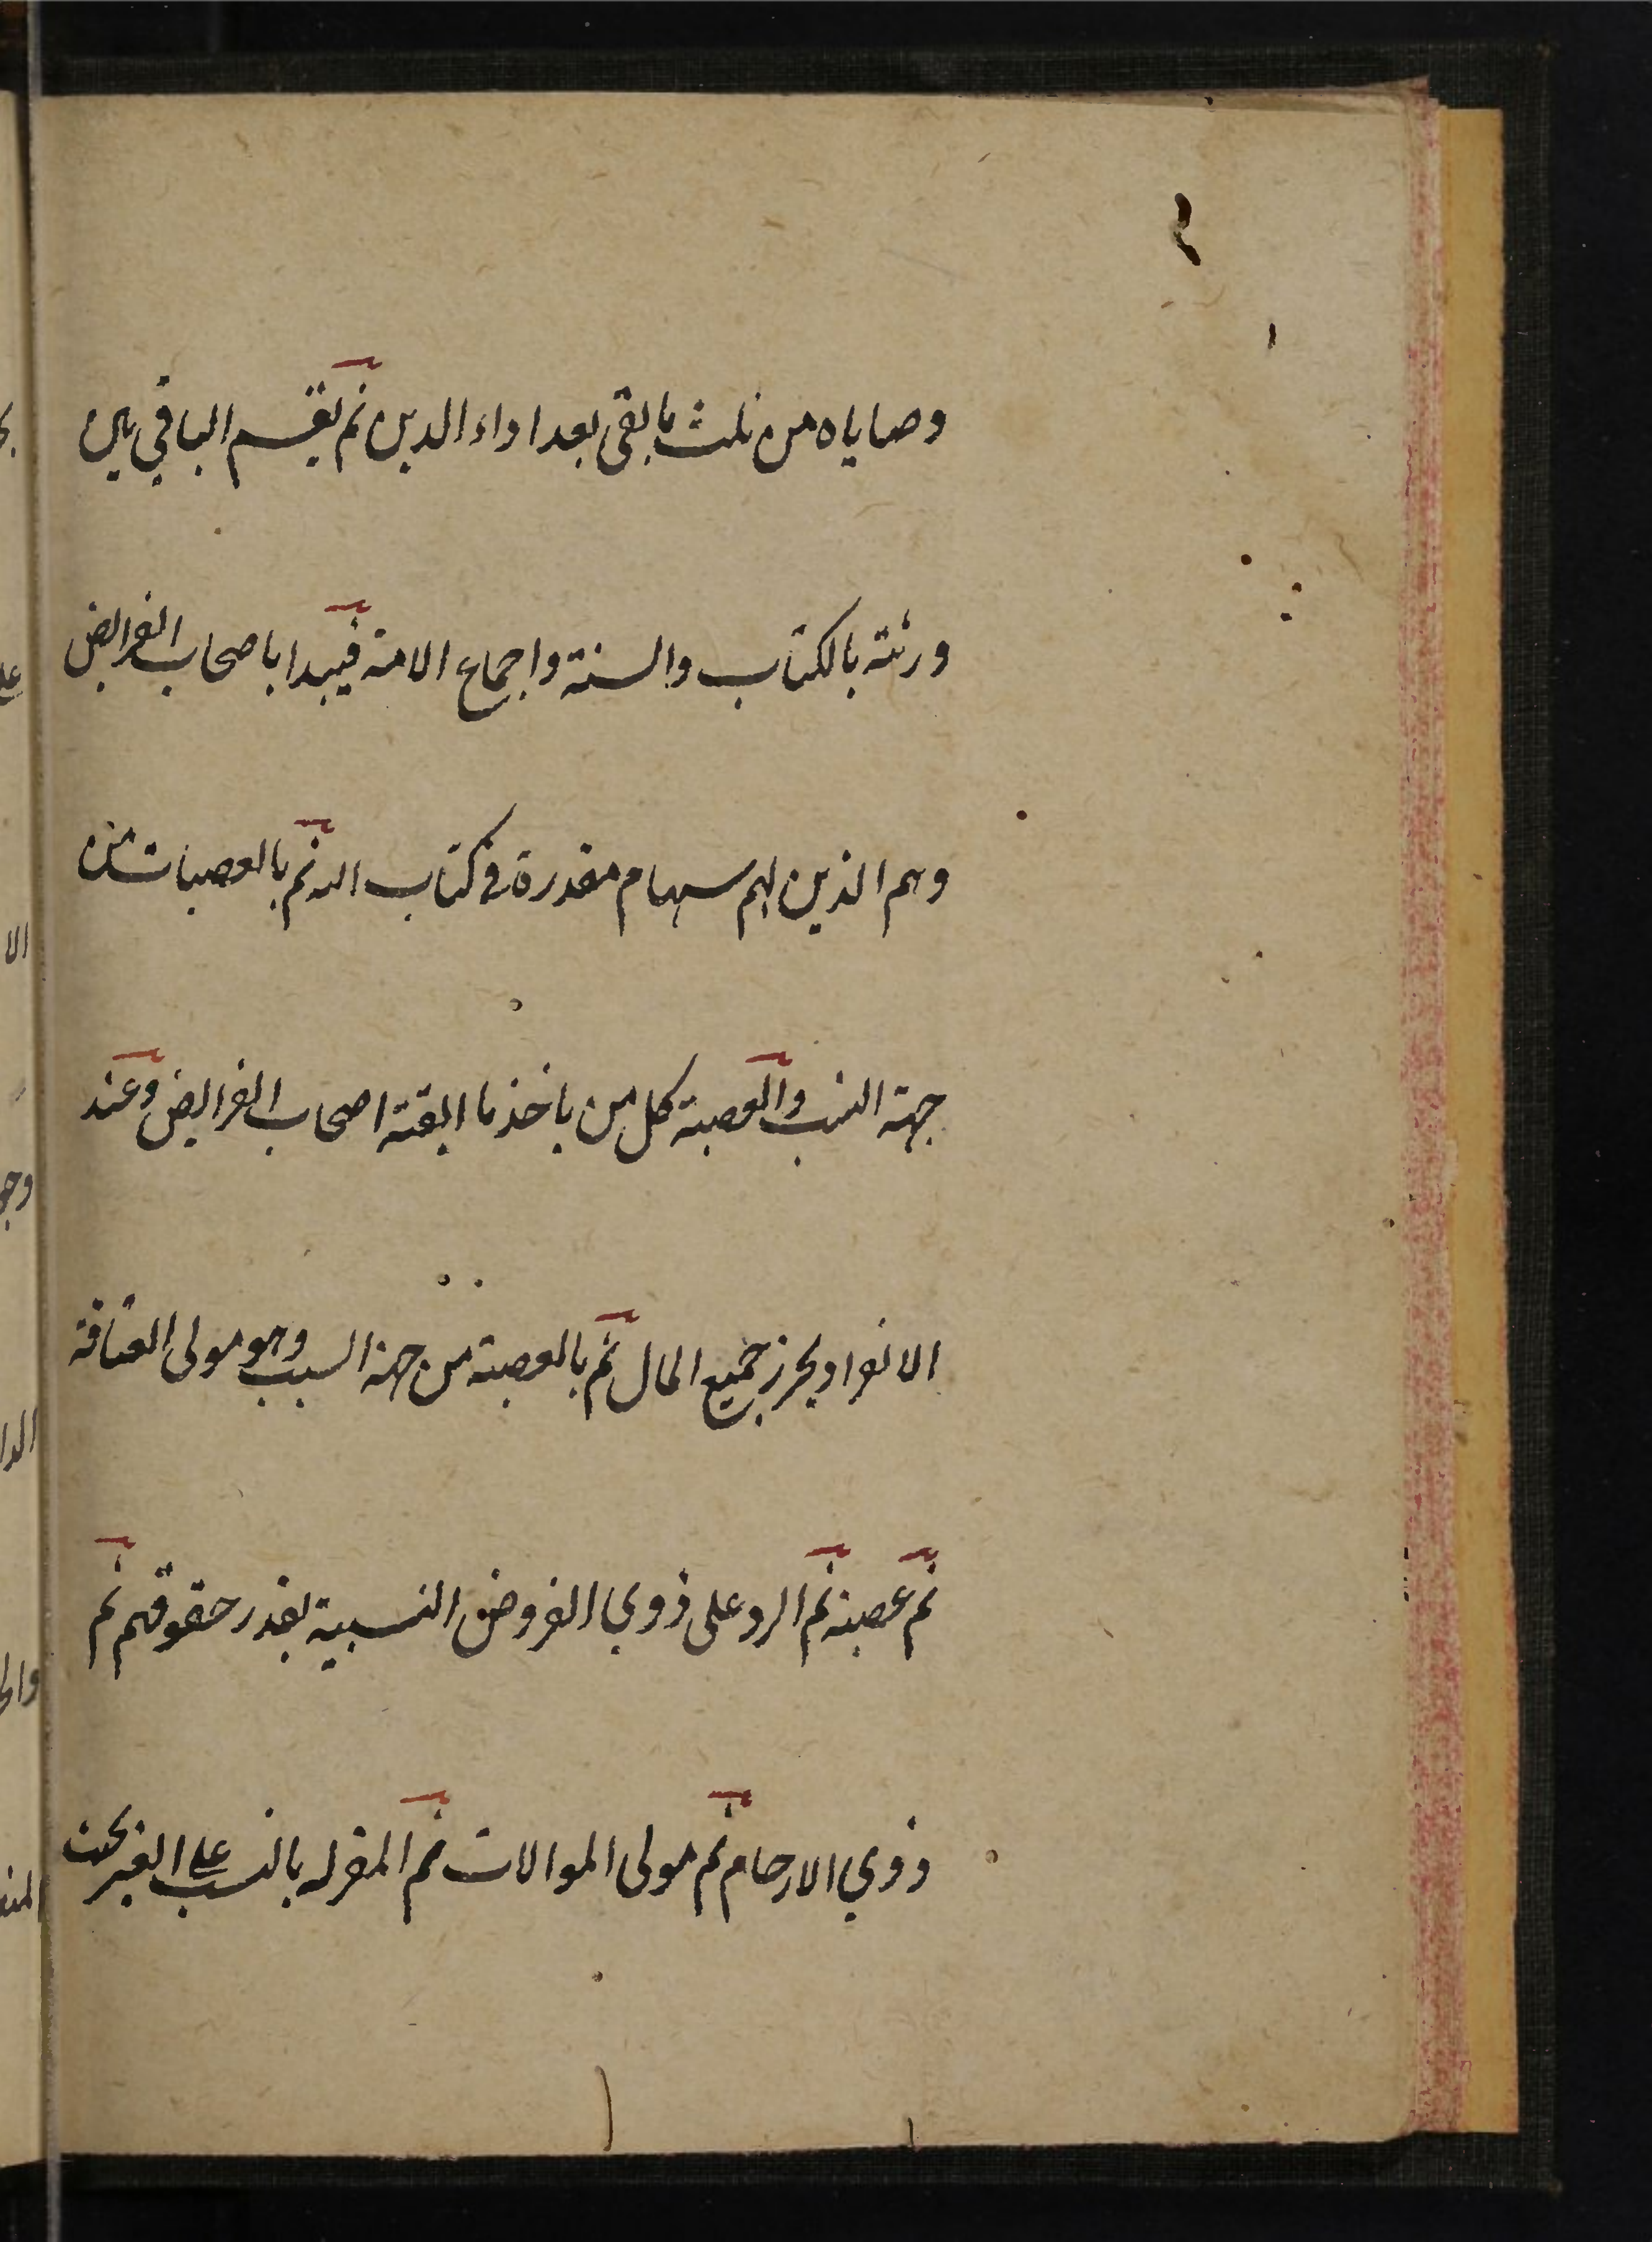 وصاياه من ثلث ما بقى بعد اداء الدين ثم يقسم الباقي بين
ورثته بالكتاب والسنة واجماع الامة فيبدا باصحاب الفرايض
وهم الذين لهم سهام مقدرة في كتاب الله ثم بالعصبات من
جهة النسب والعصبة كل من ياخذ ما ابقته اصحاب الفرايض وعند
الانفراد يحرز جميع المال ثم بالعصبة من جهة السبب وهو مولى العتاقة
ثم عصبته ثم الرد على ذوي الفروض النسبية بقدر حقوقهم ثم
ذوي الارحام ثم مولى الموالات ثم المقر له بالنسب على الغير بحيث